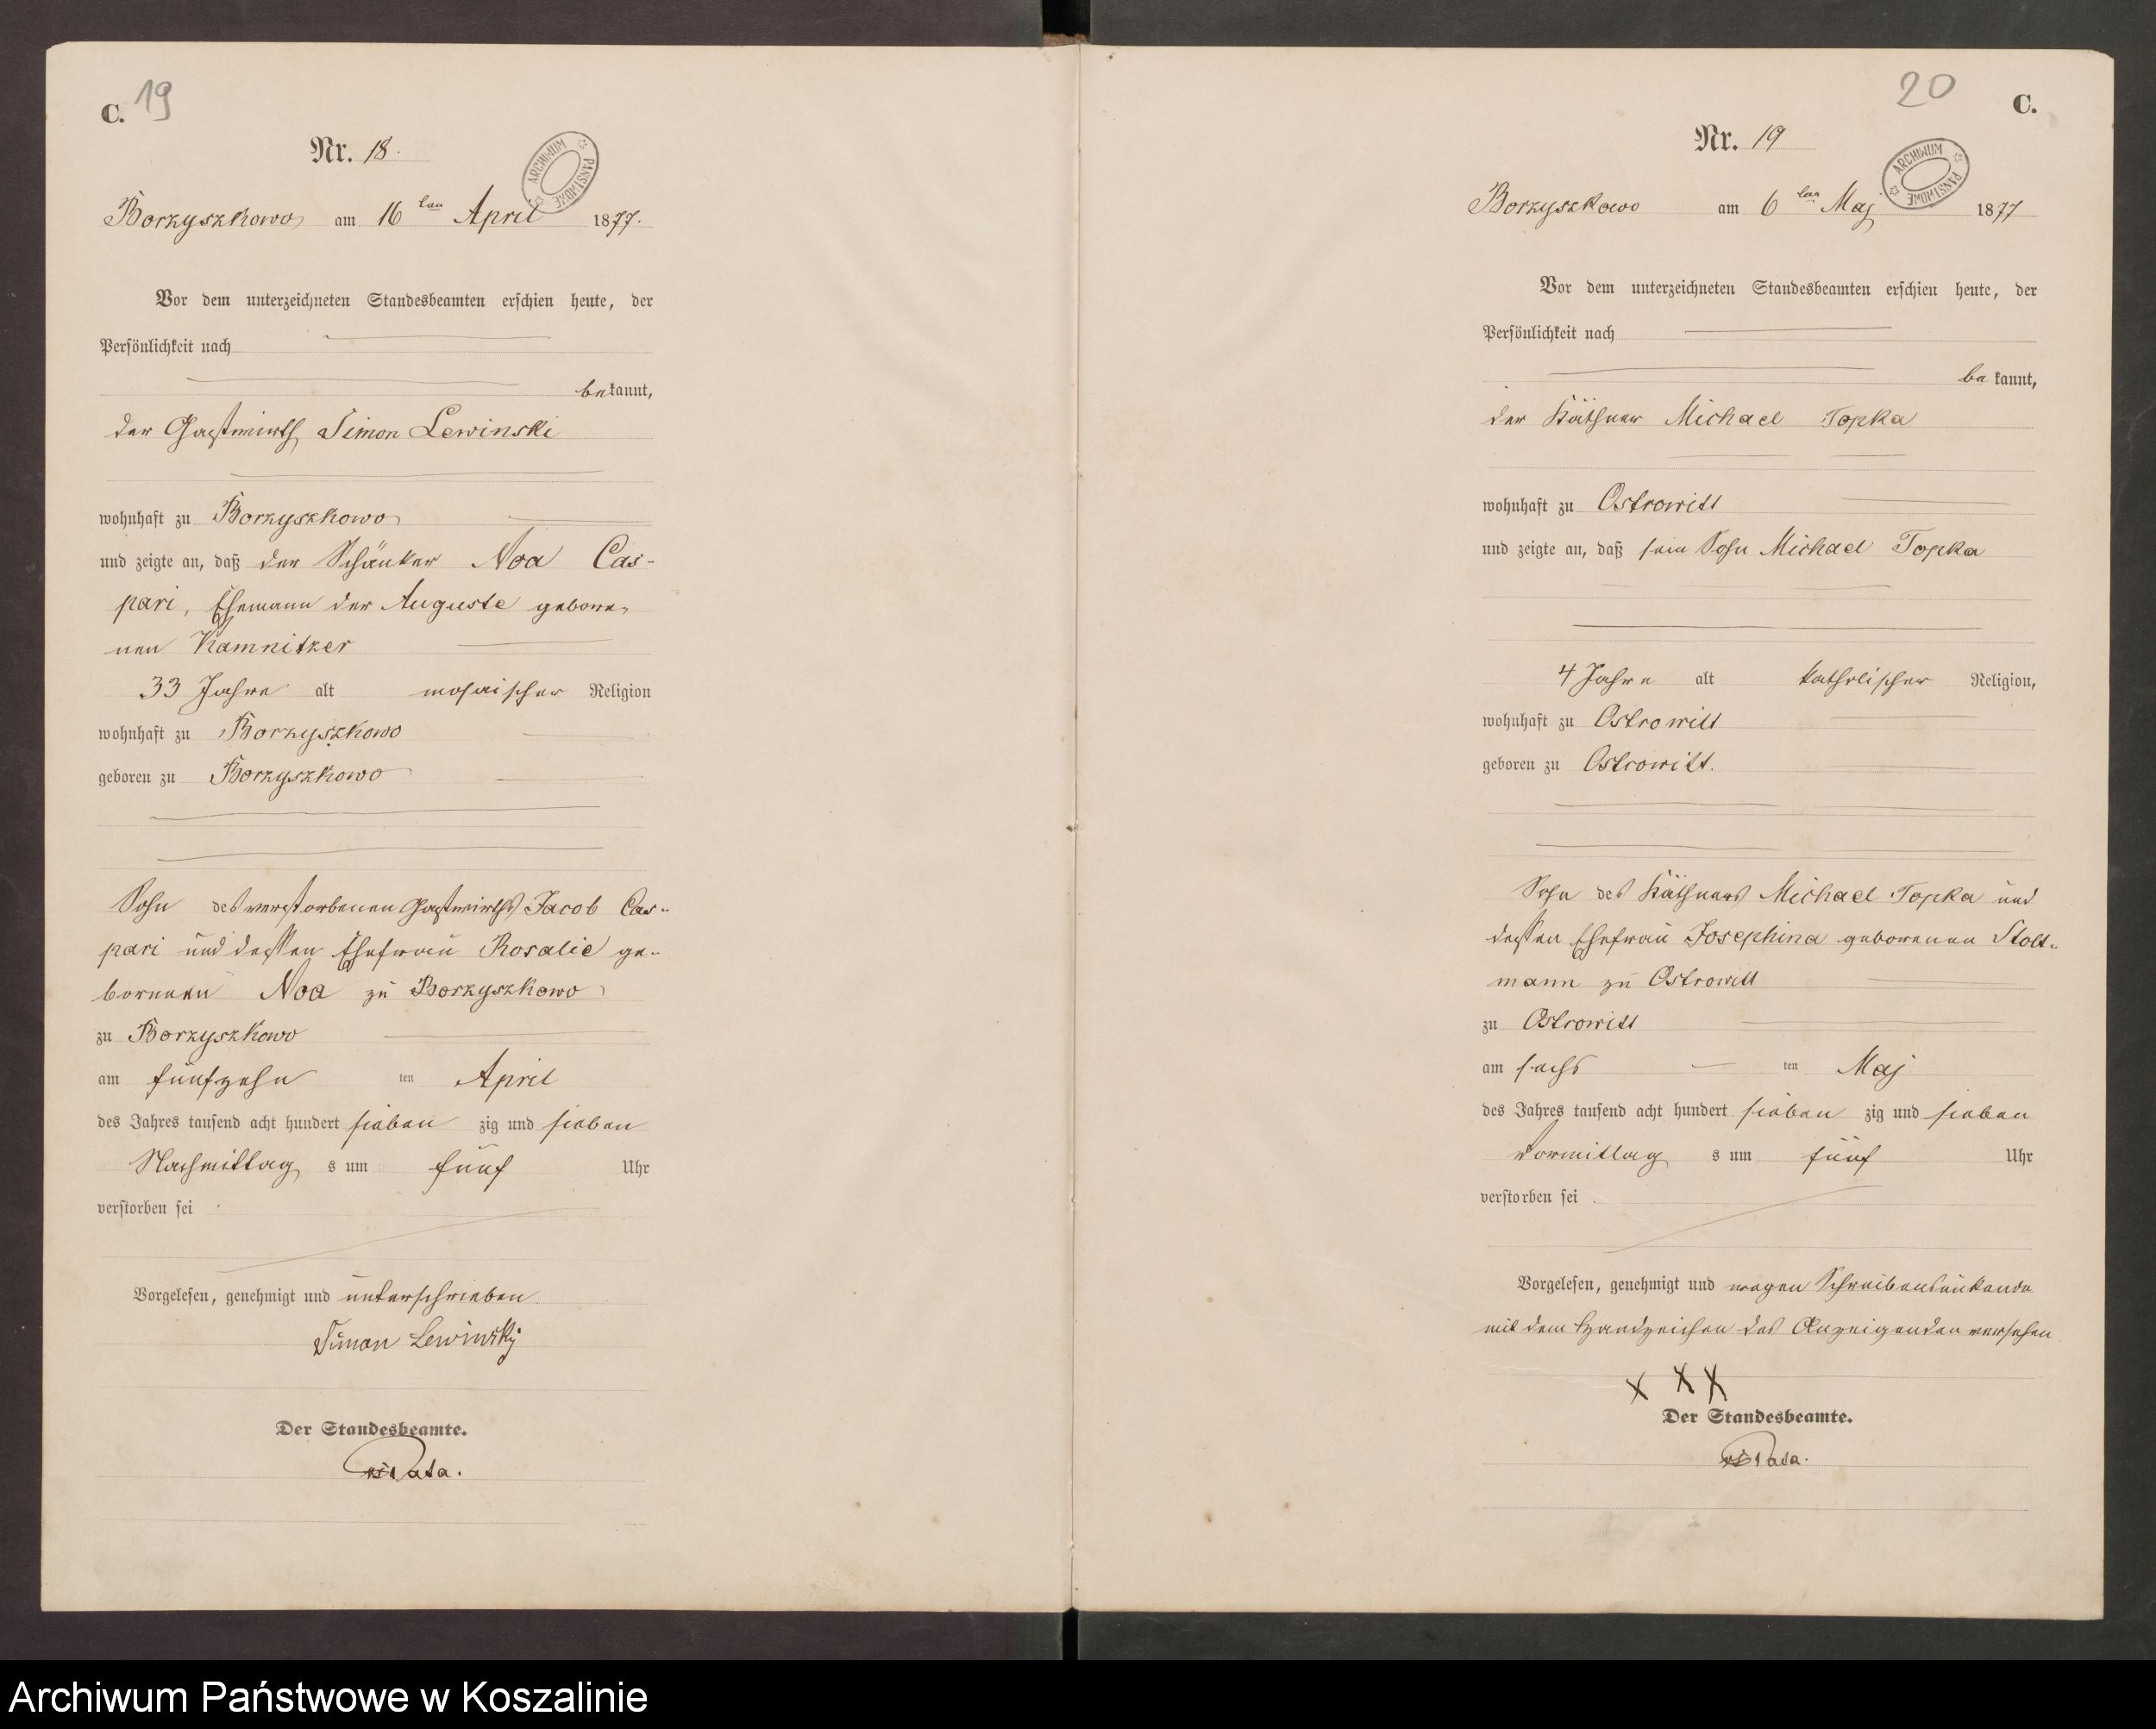 C. 19
Nr. 18.
ARCHIWUM PAŃSTWOWE
Borzyszkowo am 16 ten April 1877.
Vor dem unterzeichneten Standesbeamten erschien heute, der
Persönlichkeit nach
bekannt,
der Gastwirth Simon Lewinski
wohnhaft zu Borzyszkowo
und zeigte an, daß der Schänker Noa Cas-
pari, Ehemann der Auguste gebore-
nen Kamnitzer
33 Jahre alt mosaischer Religion
wohnhaft zu Borzyszkowo
geboren zu Borzyszkowo
Sohn des verstorbenen Gastwirths Jacob Cas-
pari und dessen Ehefrau Rosalie ge-
bornenen Noa zu Borzyszkowo
zu Borzyszkowo
am fünfzehn ten April
des Jahres tausend acht hundert sieben zig und sieben
Nachmittag s um fünf Uhr
verstorben sei
Vorgelesen, genehmigt und unterschrieben.
Simon Lewinskj
Der Standesbeamte.
20 C.
Nr. 19
ARCHIWUM PAŃSTWOWE
Borzyszkowo am 6 ten Maj 1877
Vor dem unterzeichneten Standesbeamten erschien heute, der
Persönlichkeit nach
be kannt,
der Käthner Michael Topka
wohnhaft zu Ostrowitt
und zeigte an, daß sein Sohn Michael Topka
4 Jahre alt katholischer Religion,
wohnhaft zu Ostrowitt
geboren zu Ostrowitt.
Sohn des Käthners Michael Topka und
dessen Ehefrau Josephina geborenen Stolt-
mann zu Ostrowitt
zu Ostrowitt
am sechs ten Maj
des Jahres tausend acht hundert sieben zig und sieben
Vormittag s um fünf Uhr
verstorben sei
Vorgelesen, genehmigt und wegen Schreibensunkunde
mit dem Handzeichen des Anzeigenden versehen
X X X
Der Standesbeamte.
Archiwum Państwowe w Koszalinie